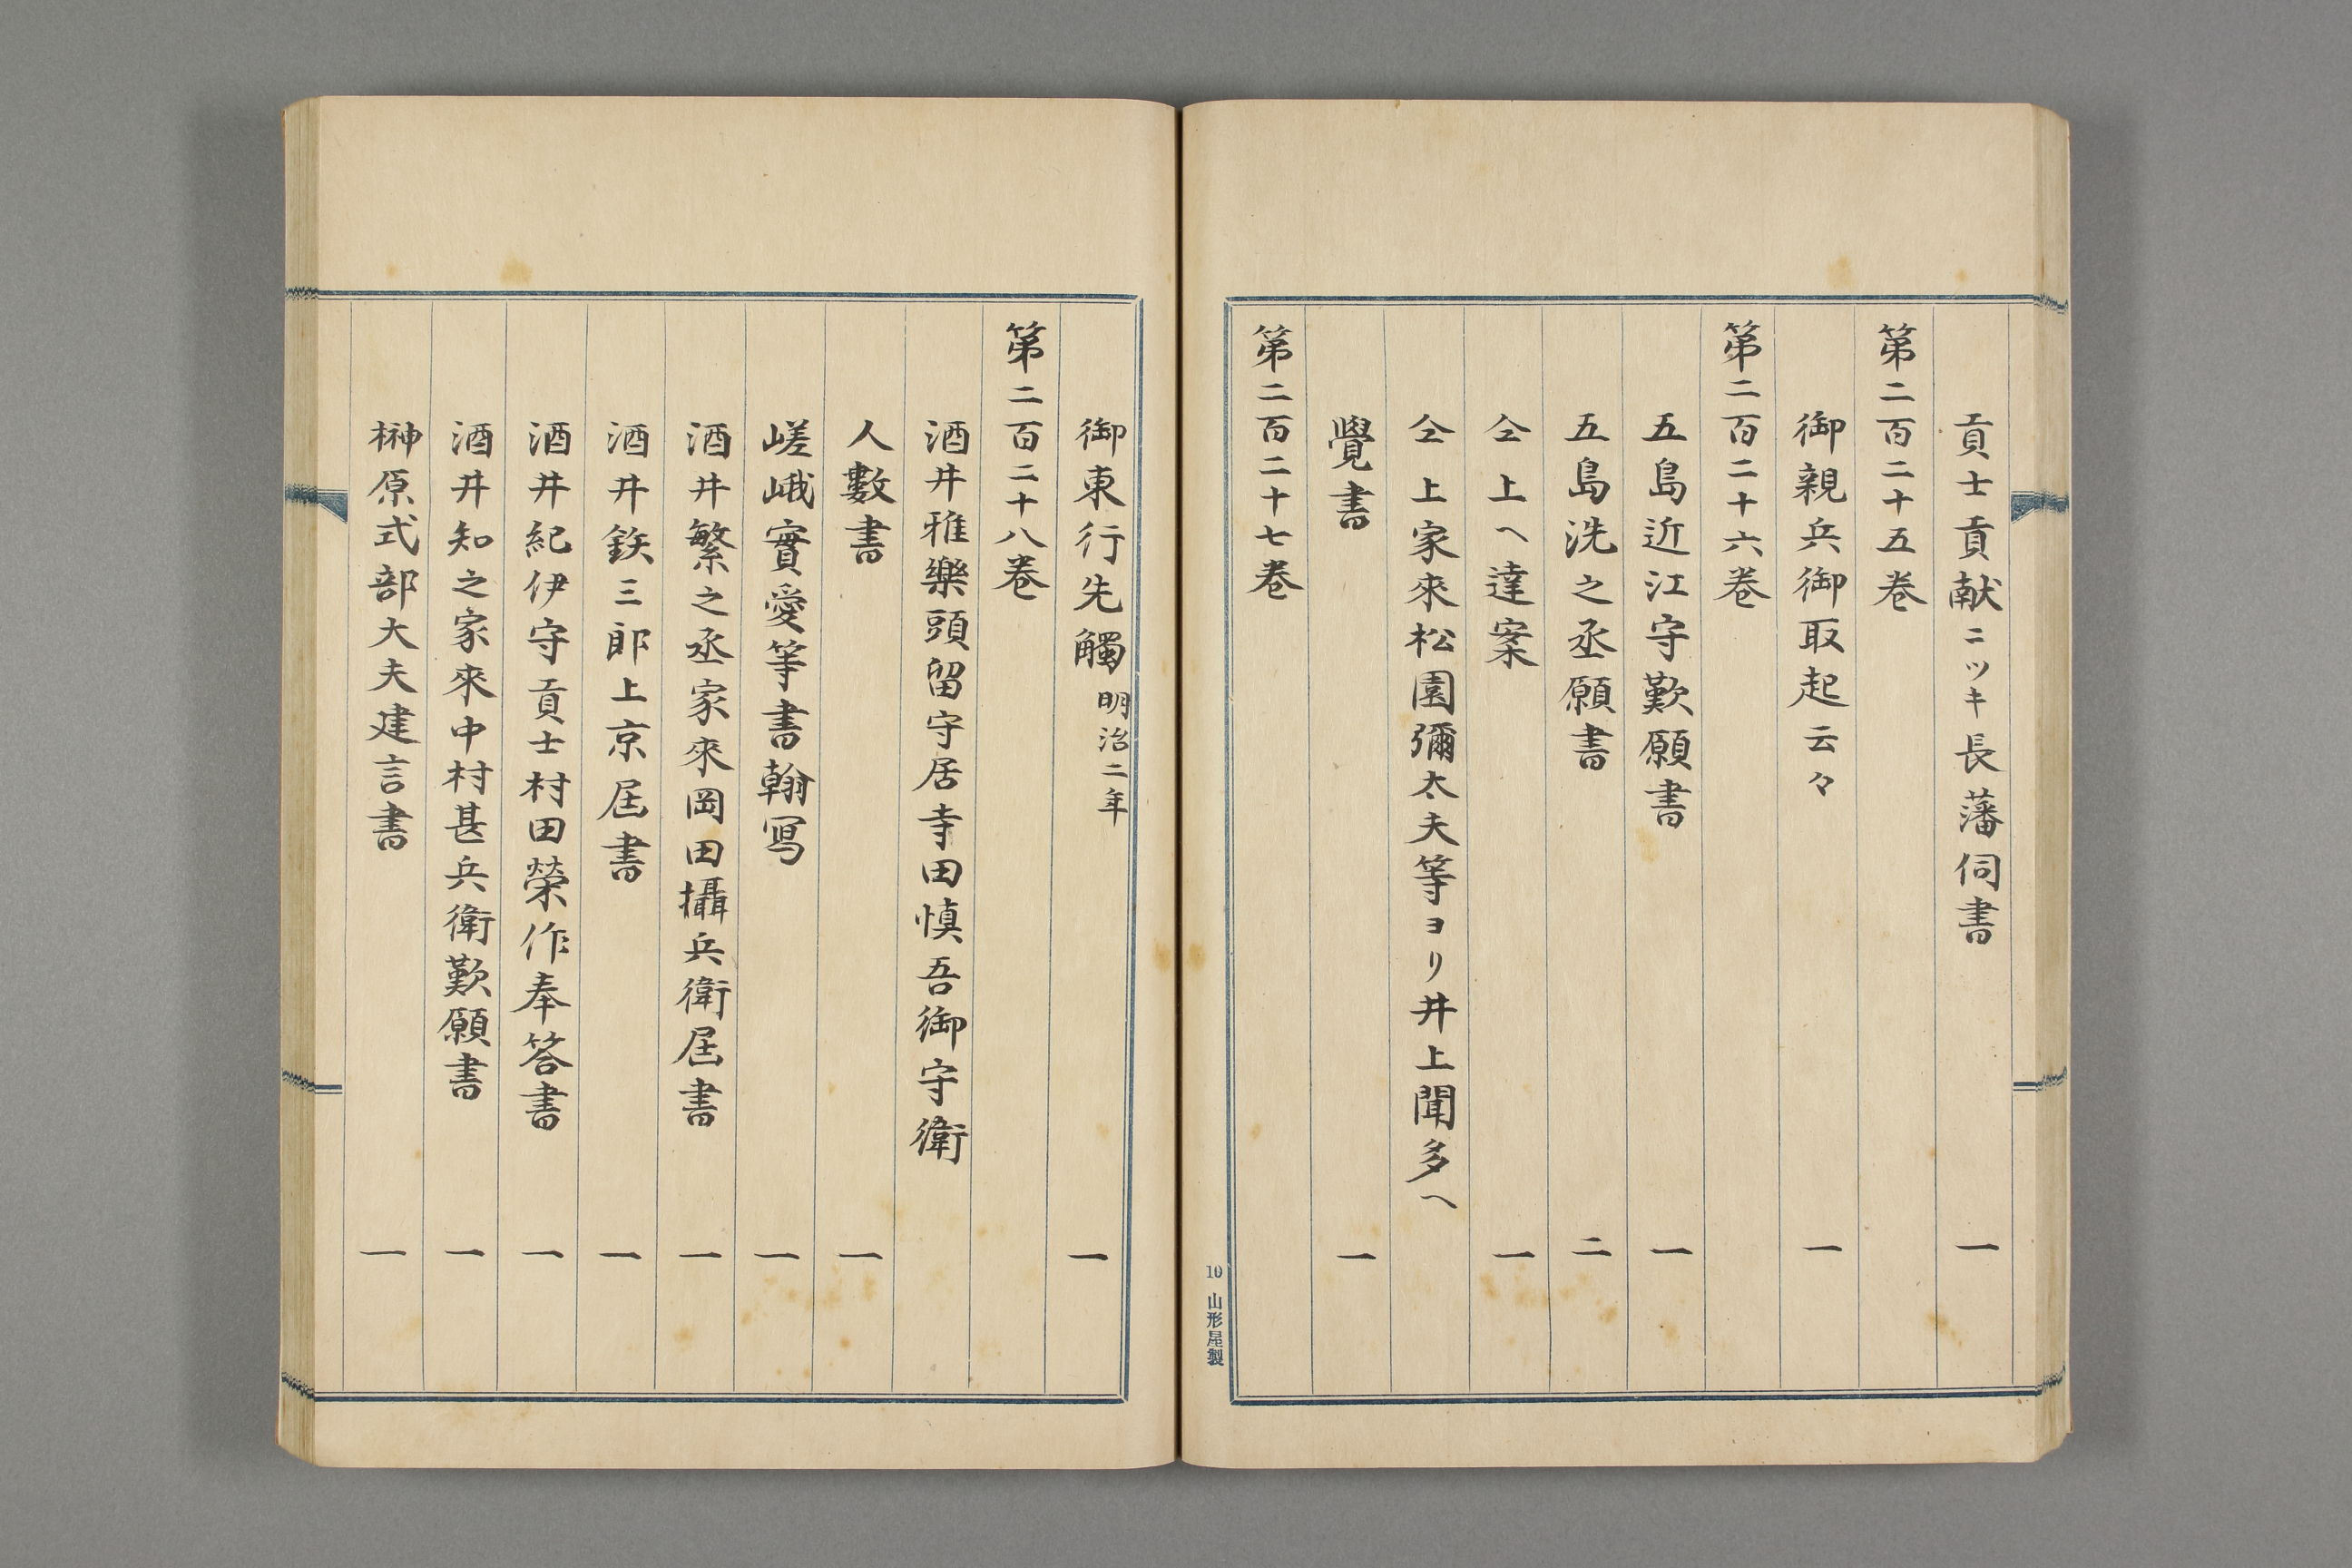 貢士貢献ニツキ長藩伺書 一
第二百二十五巻
御親兵御取起云々 一
第二百二十六巻
五島近江守歎願書 一
五島洗之丞願書 二
仝上ヘ達案 一
仝上家來松園彌太夫等ヨリ井上聞多ヘ
覺書 一
第二百二十七巻
10 山形屋製
御東行先觸 明治二年 一
第二百二十八巻
酒井雅樂頭留守居寺田慎吾御守衛
人數書 一
嵯峨實愛等書翰写 一
酒井繁之丞家來岡田攝兵衛届書 一
酒井鉄三郎上京届書 一
酒井紀伊守貢士村田榮作奉答書 一
酒井知之家來中村甚兵衛歎願書 一
榊原式部大夫建言書 一